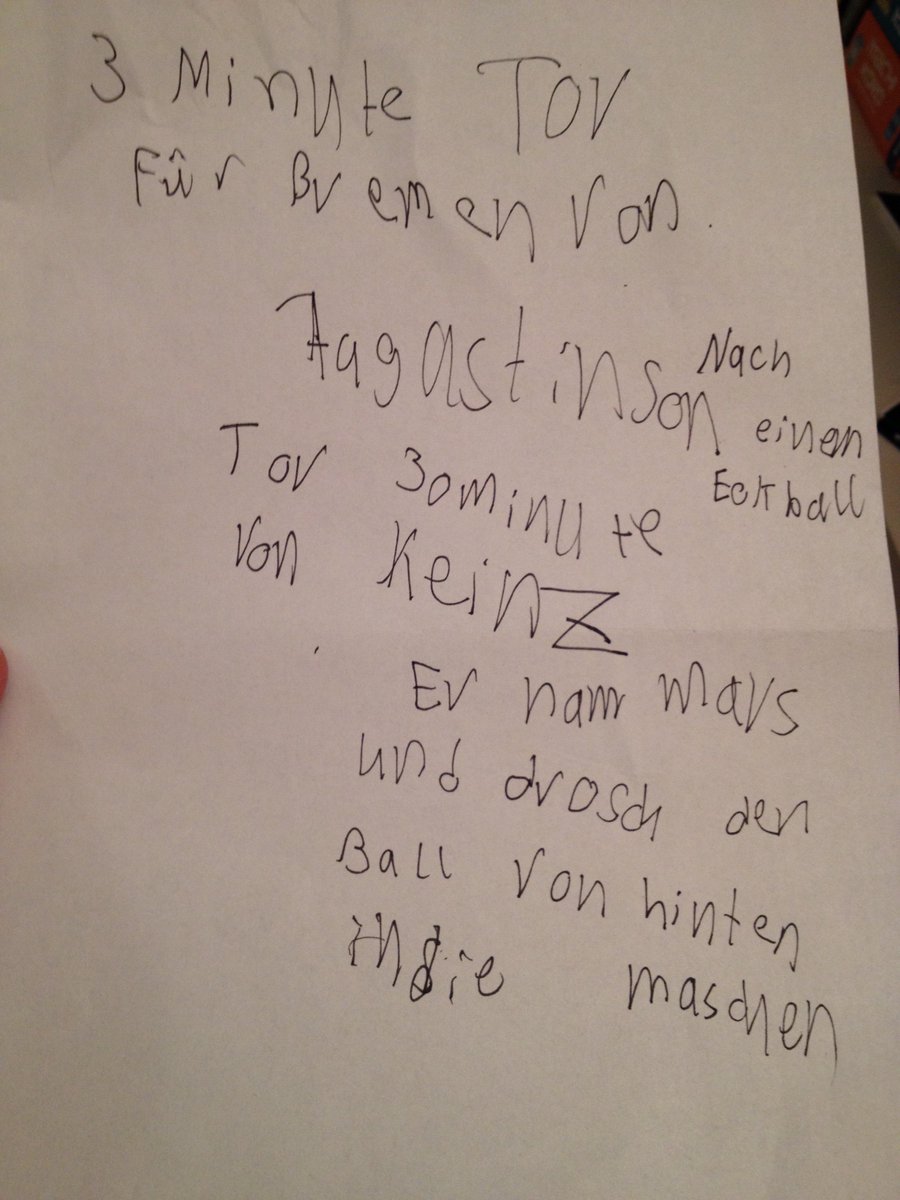 3 Minute Tor
Für Bremen von.
Aagastinson Nach
einen
Eckball
Tor 30minute
von Keinz
Er nam Mars
und drosch den
Ball von hinten
in die maschen